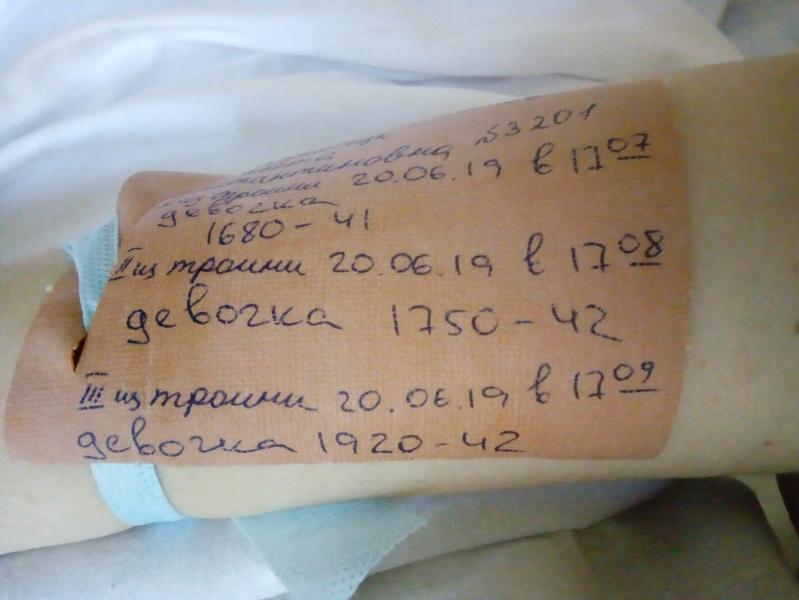 №3201
из тройни 20.06.19 в 17 07
девочка
1680-41
II из тройни 20.06.19 в 17 08
девочка 1750-42
III из тройни 20.06.19 в 17 09
девочка 1920-42